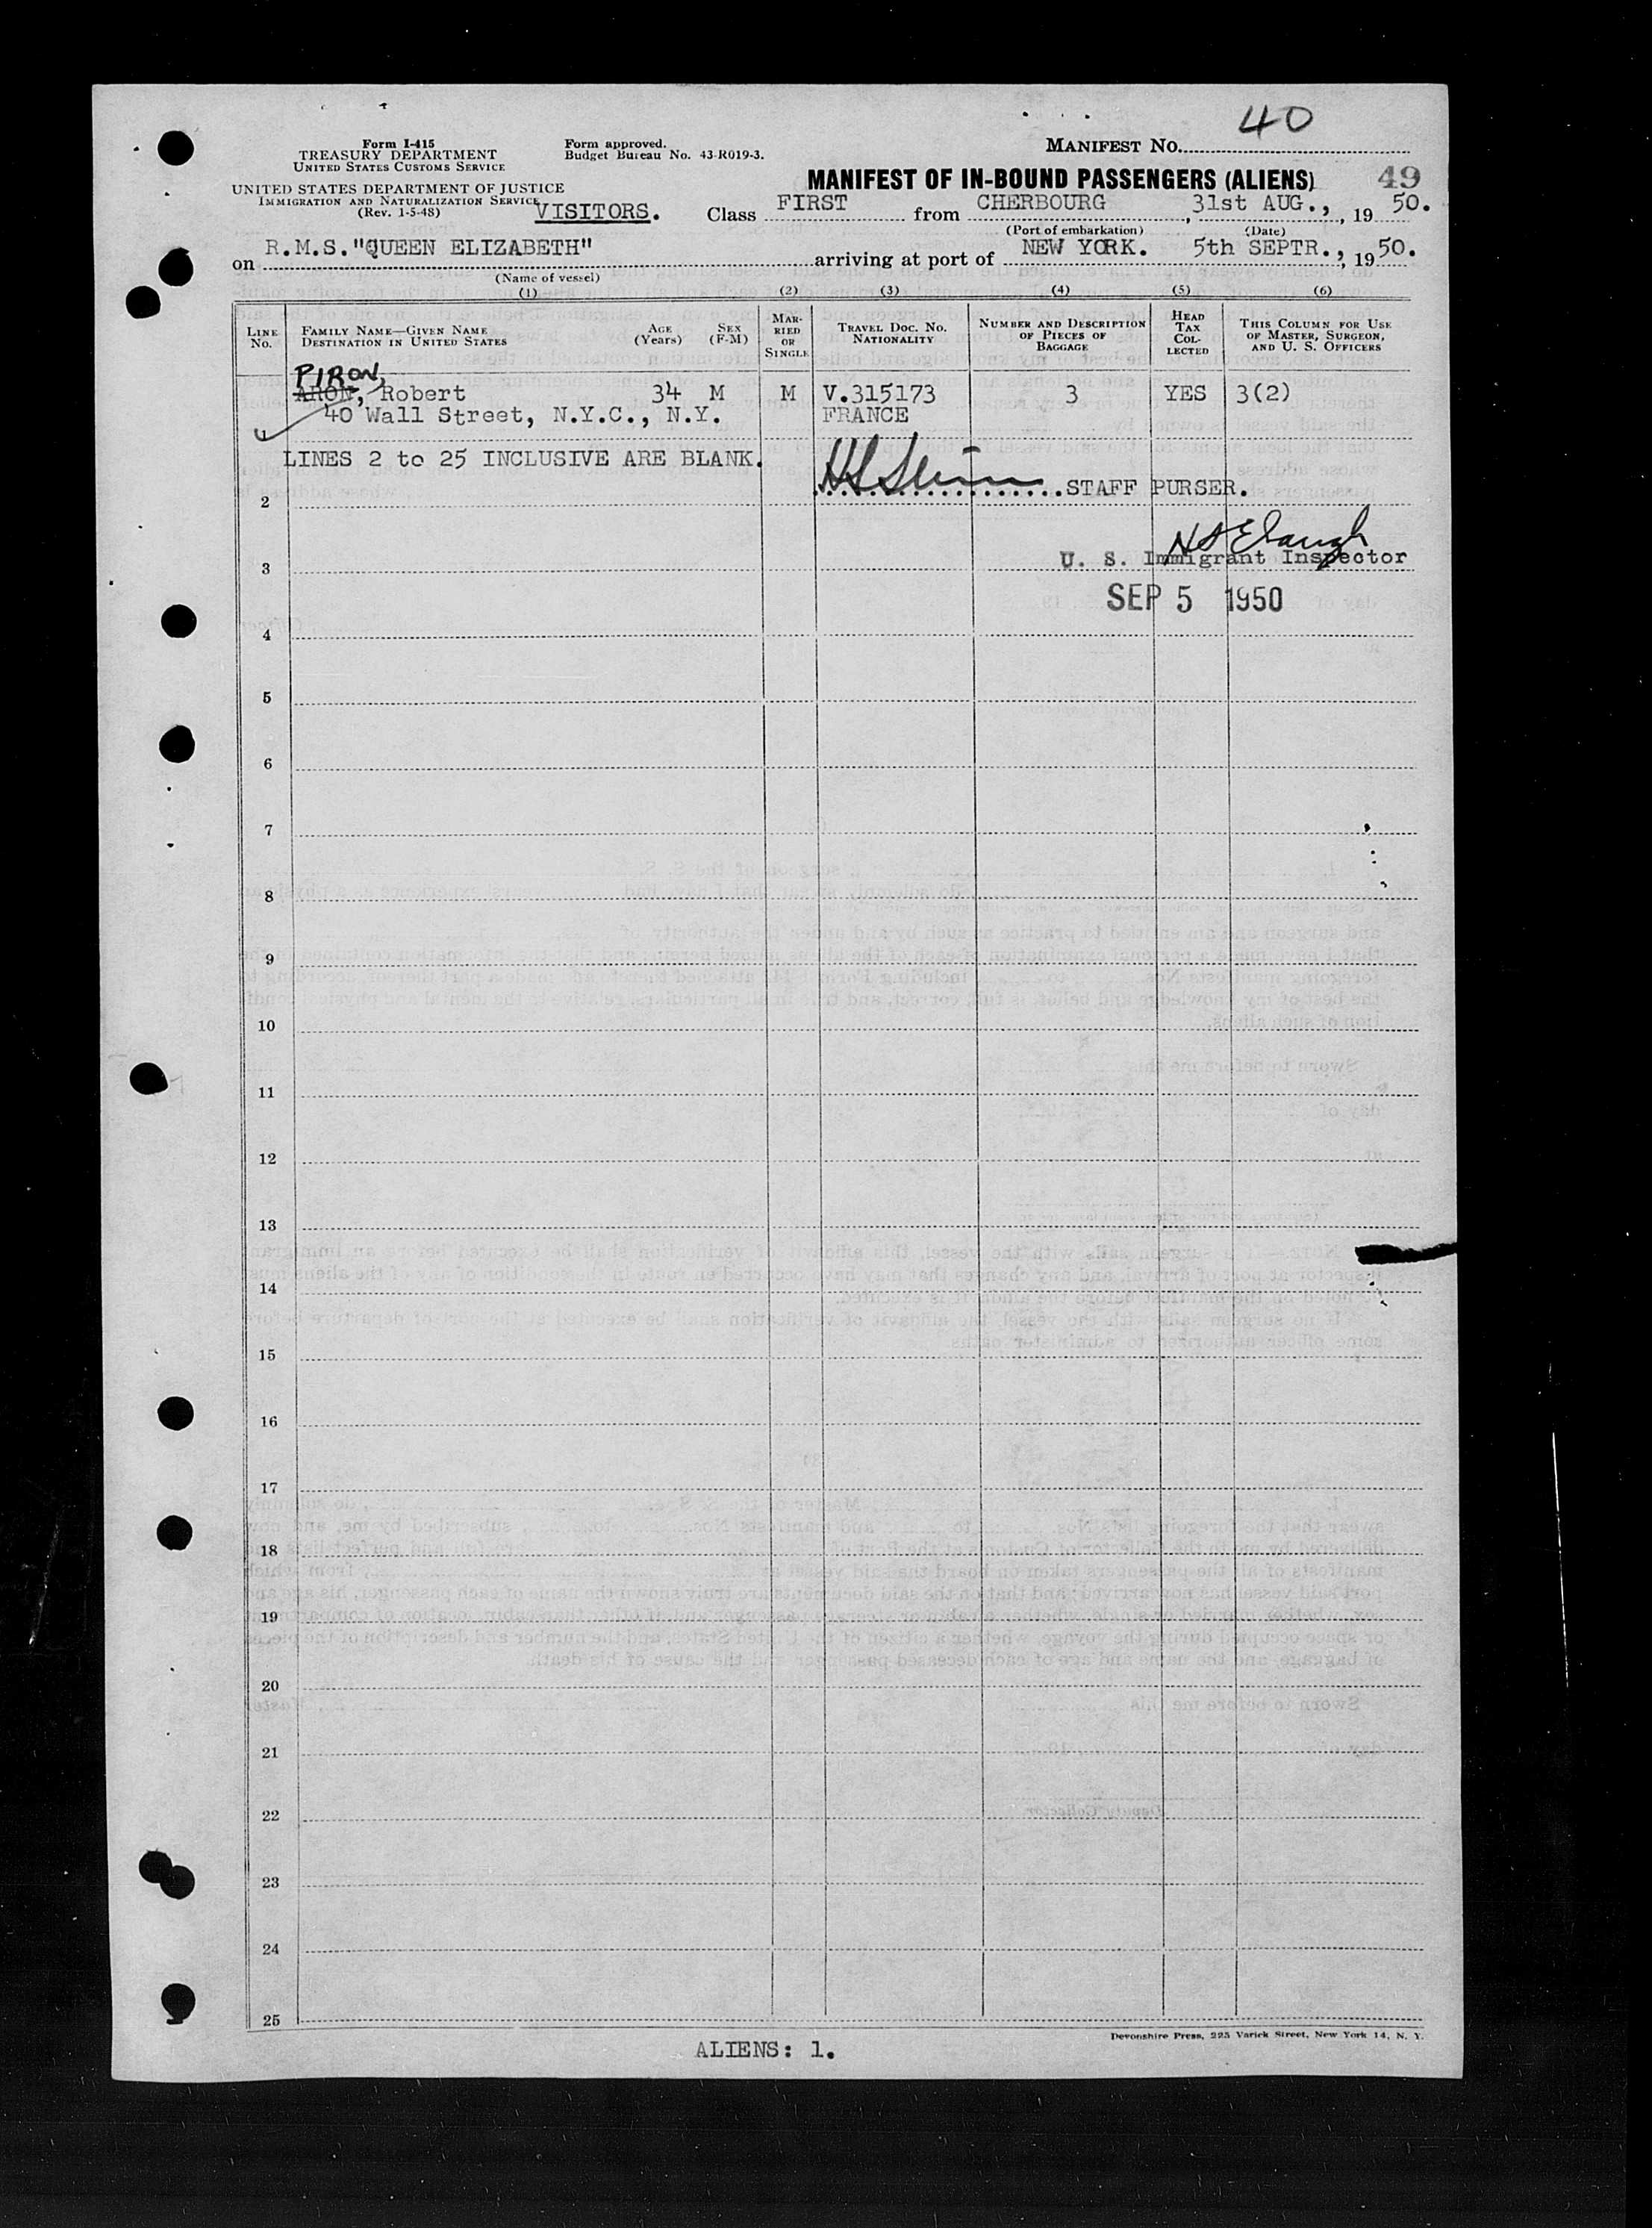 40
Form I-415
TREASURY DEPARTMENT
UNITED STATES CUSTOMS SERVICE
Form approved.
Budget Bureau No. 43-R019-3.
MANIFEST No.
UNITED STATES DEPARTMENT OF JUSTICE
IMMIGRATION AND NATURALIZATION SERVICE
(Rev. 1-5-48)
MANIFEST OF IN-BOUND PASSENGERS (ALIENS) 49
VISITORS. Class FIRST from CHERBOURG, 31st AUG., 19 50.
(Port of embarkation) (Date)
on R.M.S."QUEEN ELIZABETH" arriving at port of NEW YORK. 5th SEPTR., 19 50.
(Name of vessel)
(1) (2) (3) (4) (5) (6)
LINE No. FAMILY NAME—GIVEN NAME DESTINATION IN UNITED STATES AGE (Years) SEX (F-M) MARRIED OR SINGLE TRAVEL DOC. NO. NATIONALITY NUMBER AND DESCRIPTION OF PIECES OF BAGGAGE HEAD TAX COLLECTED THIS COLUMN FOR USE OF MASTER, SURGEON, AND U. S. OFFICERS
PIRON,
ARON, Robert 34 M M V.315173 3 YES 3(2)
40 Wall Street, N.Y.C., N.Y. FRANCE
LINES 2 to 25 INCLUSIVE ARE BLANK.
STAFF PURSER.
2
U. S. Immigrant Inspector
3
SEP 5 1950
4
5
6
7
8
9
10
11
12
13
14
15
16
17
18
19
20
21
22
23
24
25
Devonshire Press, 225 Varick Street, New York 14, N. Y.
ALIENS: 1.